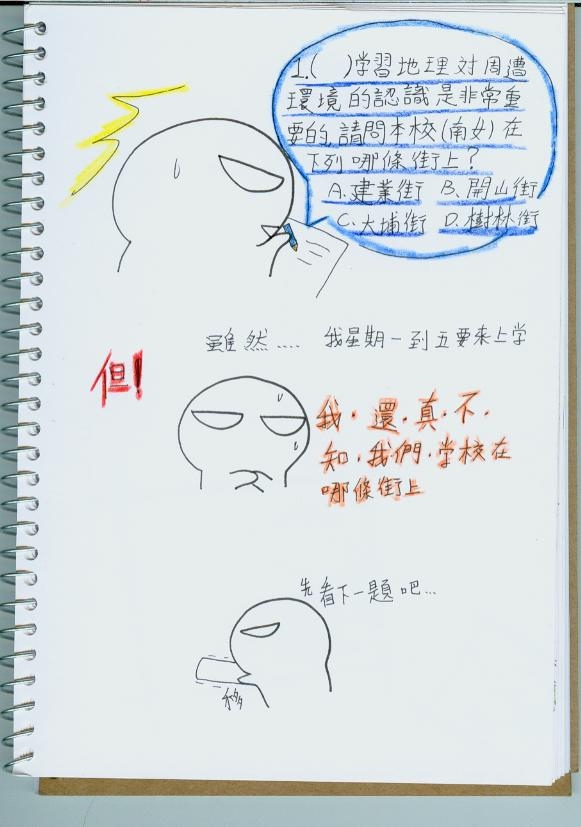 1.(  )学習地理对周遭
環境的認識是非常重
要的,請問本校(南女)在
下列哪條街上?
A.建業街 B.開山街
C.大埔街 D.樹林街
雖然.... 我星期一到五要來上学
但!
我.還.真.不.
知.我們.学校在
哪條街上
先看下一題吧...
移